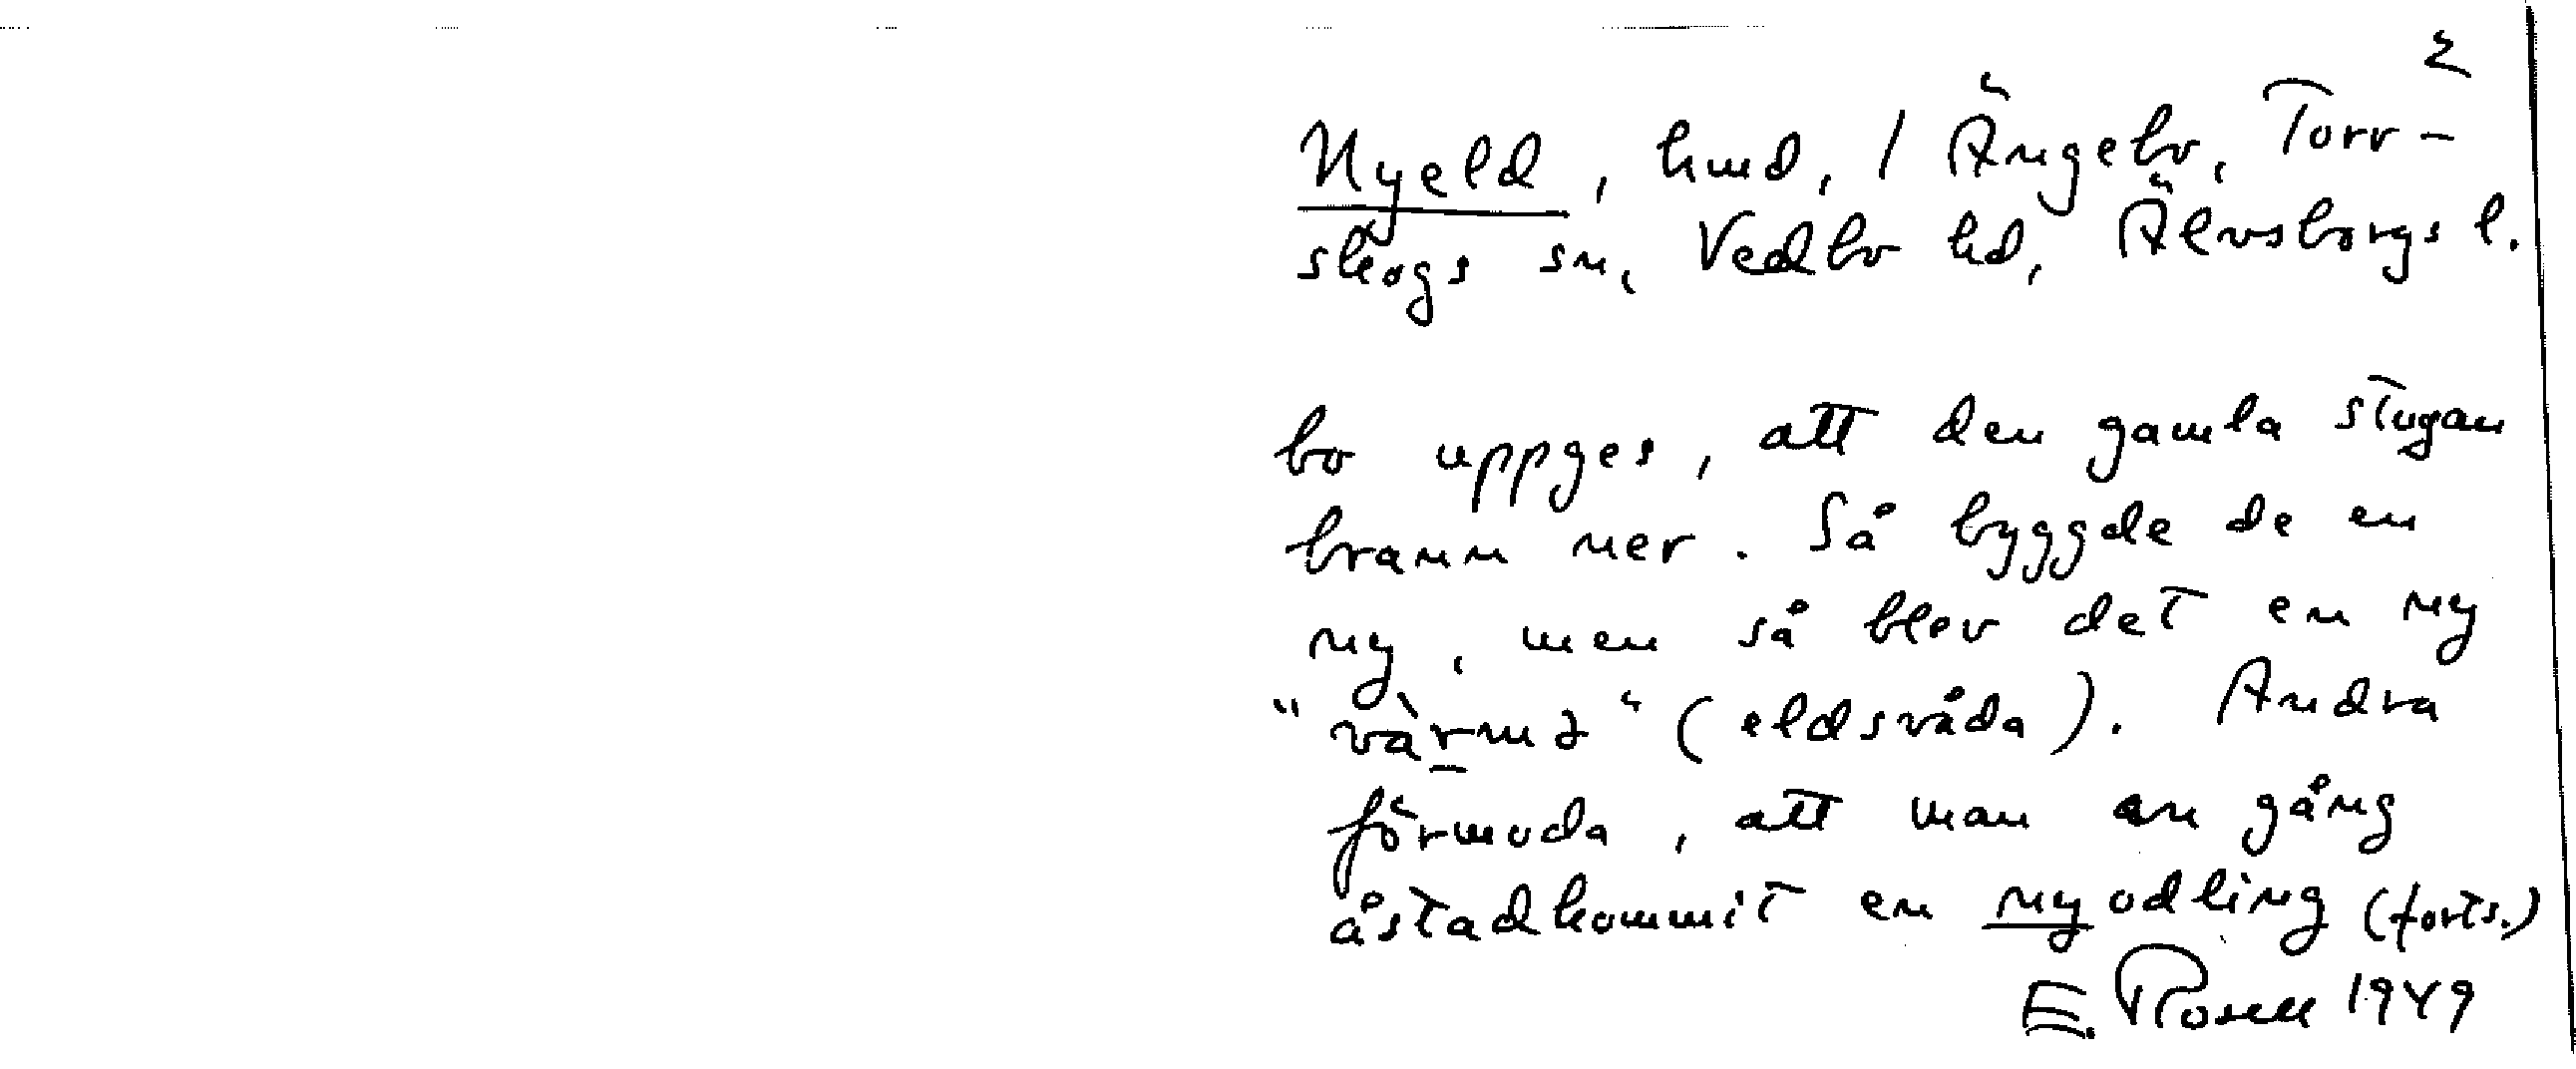 2
Nyeld, hmd, / Ängebo, Torr-
skogs sn, Vedbo hd, Älvsborgs l.
bo uppges, att den gamla stugan
brann ner. Så byggde de en
ny, men så blev det en ny
"vàrmə" (eldsvåda). Andra
förmoda, att man en gång
åstadkommit en nyodling (forts.)
E. Rosell 1949